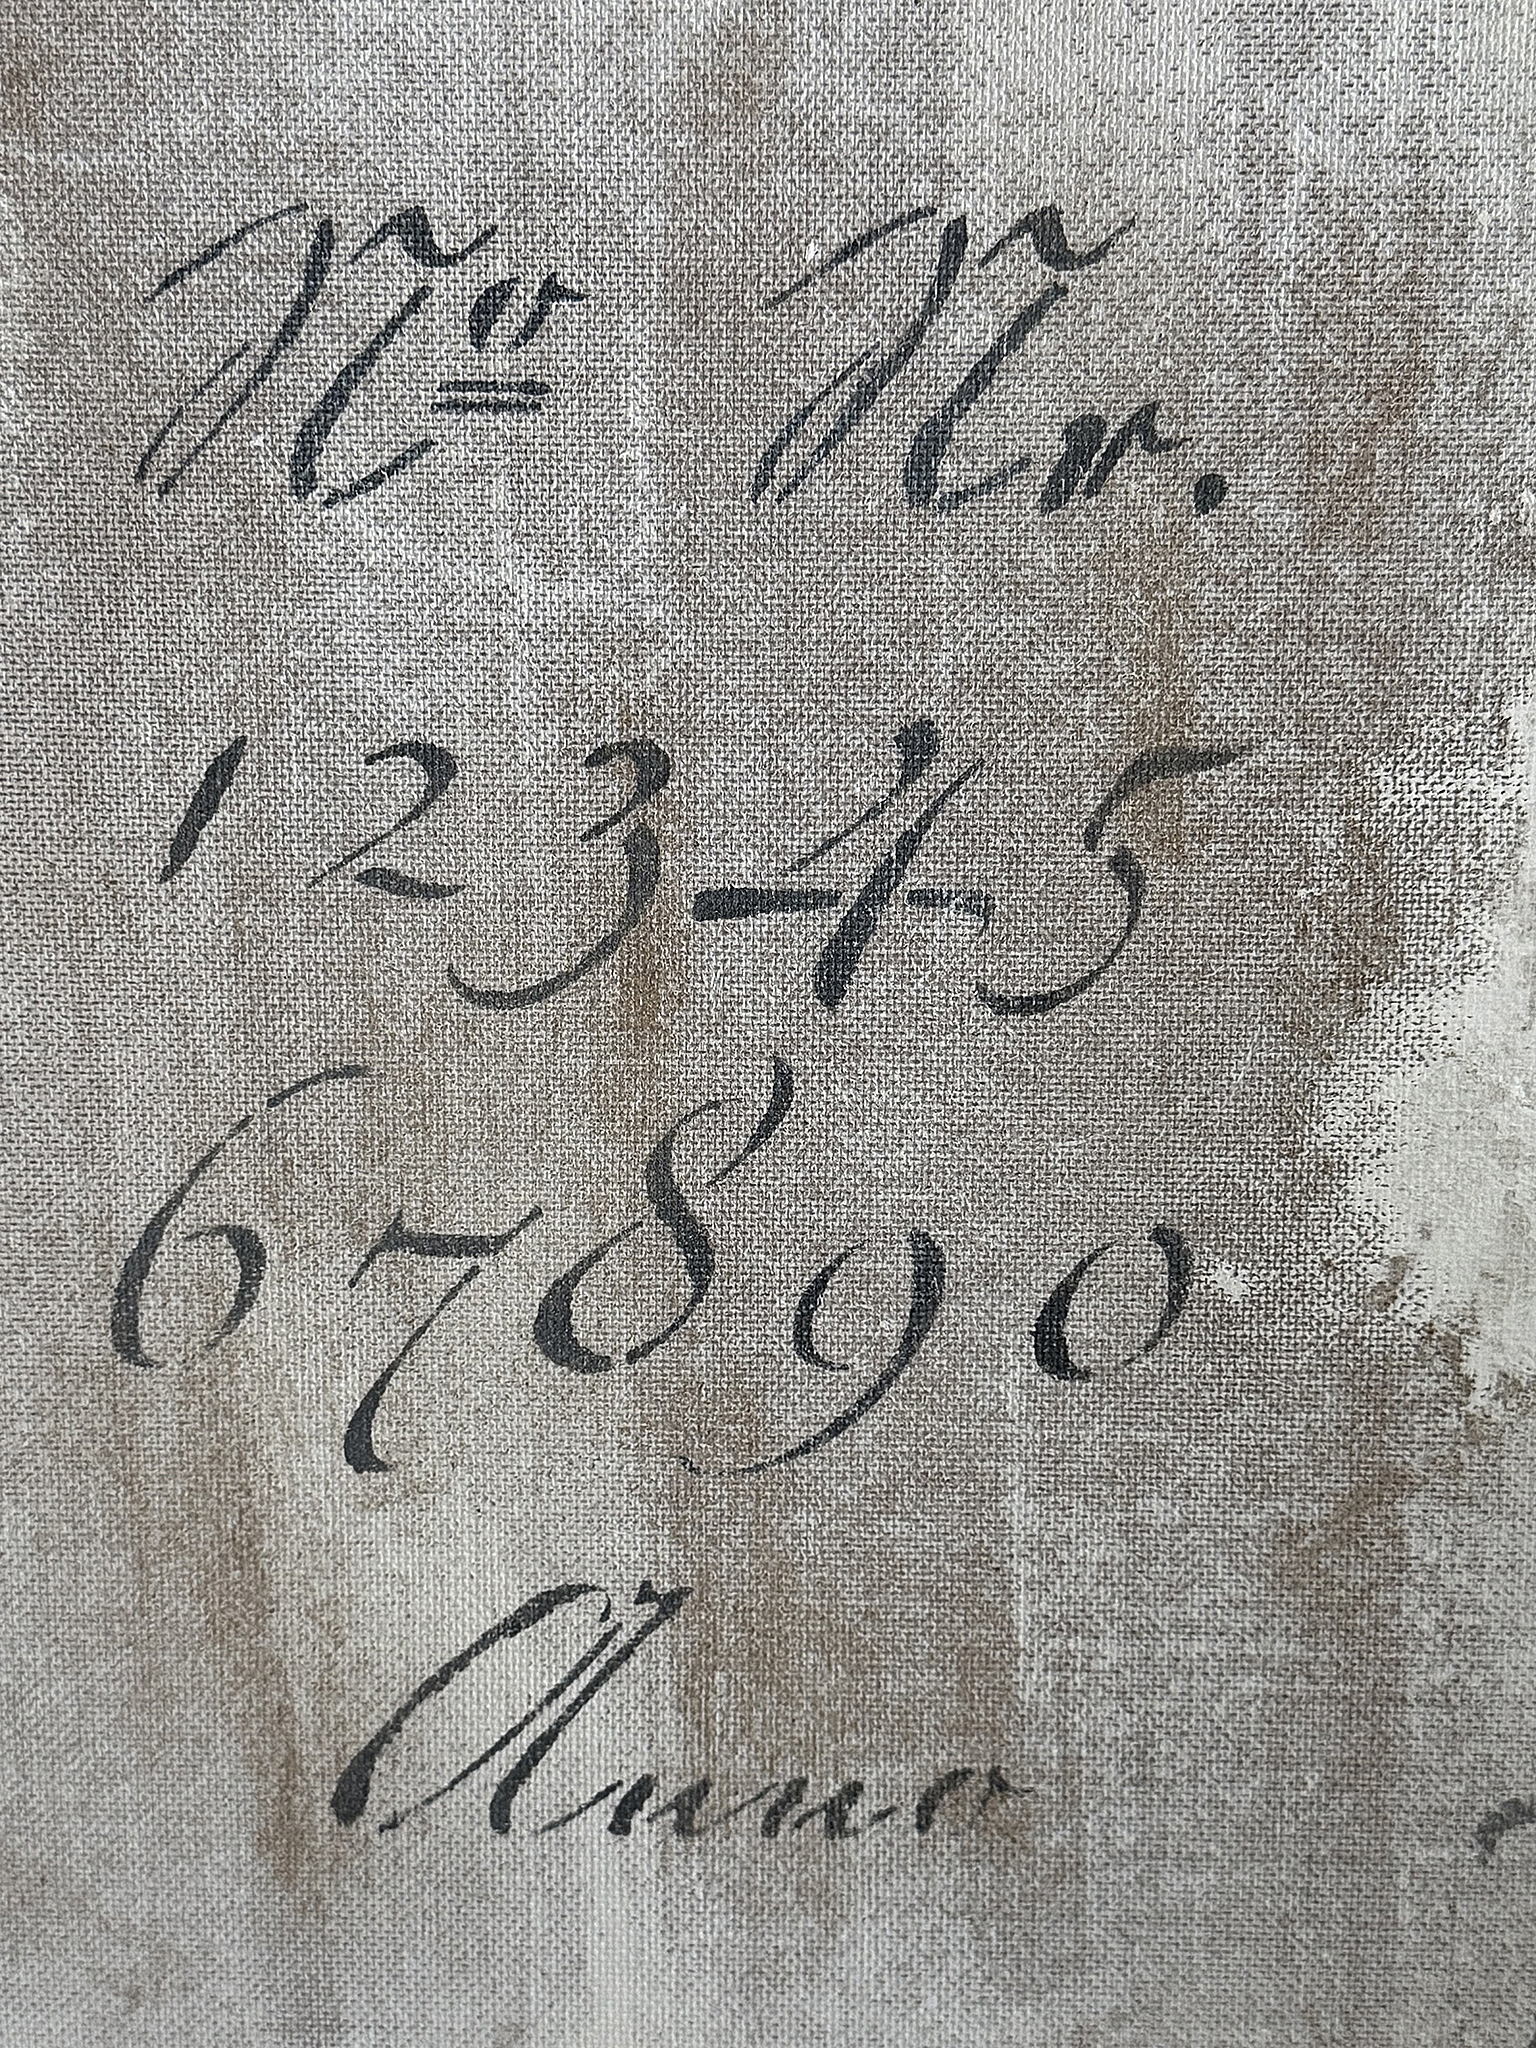 No Nr.
1 2 3 4 5
6 7 8 9 0
Anno